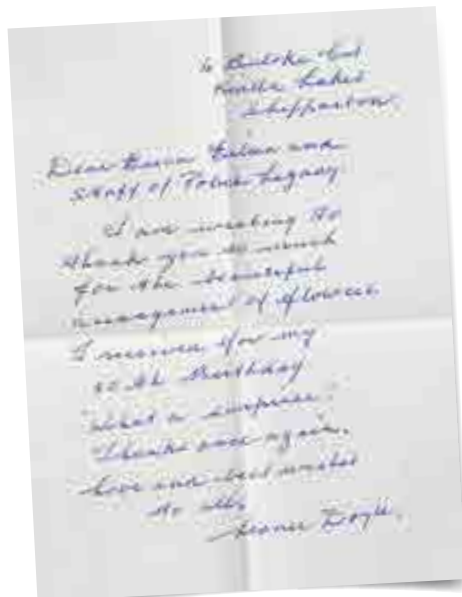 Kialla Lakes
Shepparton.
Dear and
Staff of Police Legacy
I am writing to
thank you so much
for the beautiful
arrangement of flowers
I received for my
Birthday
What a surprise.
Thanks once again.
Love and best wishes
to all,
Doyle.